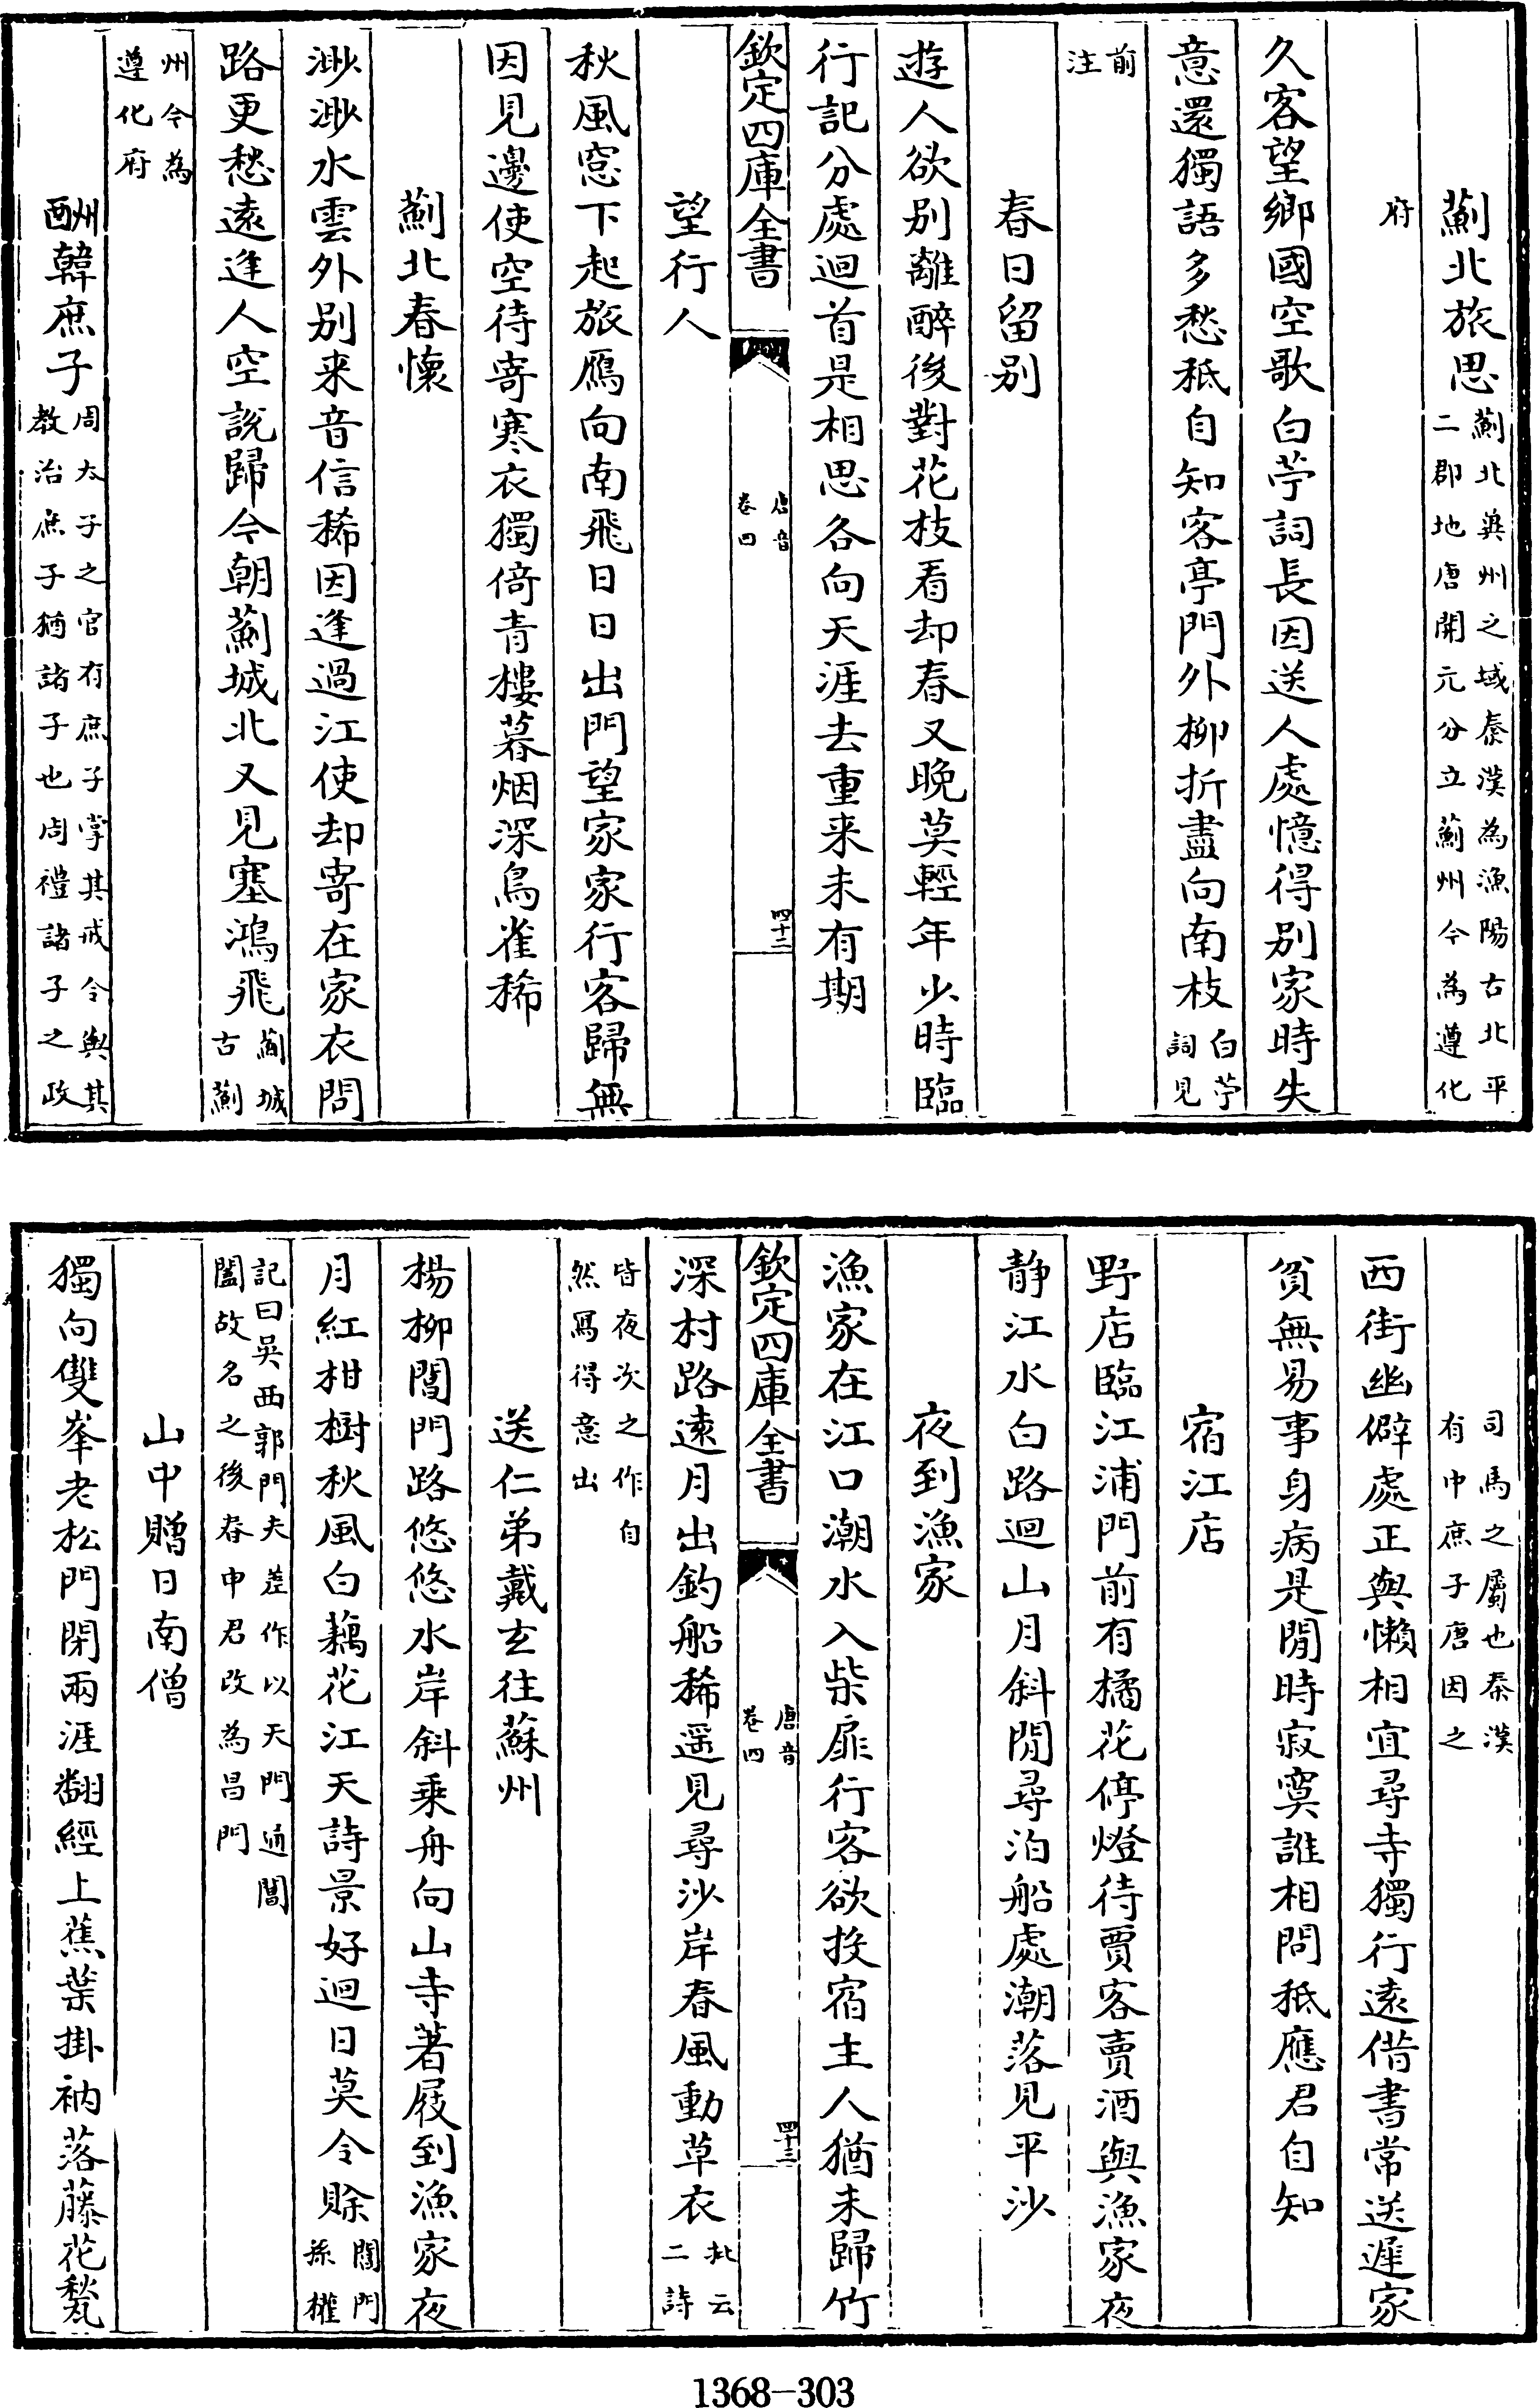 薊北旅思薊北兾州之域秦漢為漁陽古北平二郡地唐開元分立薊州今為遵化
府
久客望鄉國空歌白苧詞長因送人處憶得别家時失
意還獨語多愁秪自知客亭門外柳折盡向南枝白苧詞見
前注
春日留别
遊人欲别離醉後對花枝看却春又晚莫輕年少時臨
行記分處迴首是相思各向天涯去重来未有期
欽定四庫全書
唐音
卷四
四十二
望行人
秋風窓下起旅鴈向南飛日日出門望家家行客歸無
因見邊使空待寄寒衣獨倚青樓暮烟深鳥雀稀
薊北春懷
渺渺水雲外别来音信稀因逢過江使却寄在家衣問
路更愁遠逢人空説歸今朝薊城北又見塞鴻飛薊城古薊
州今為遵化府
酬韓庶子周太子之官有庶子掌其戒令與其教治庶子猶諸子也周禮諸子之政
司馬之屬也秦漢有中庶子唐因之
西街幽僻處正與懶相宜尋寺獨行遠借書常送遲家
貧無易事身病是閒時寂寞誰相問秪應君自知
宿江店
野店臨江浦門前有橘花停燈待賈客賣酒與漁家夜
静江水白路迴山月斜閒尋泊船處潮落見平沙
夜到漁家
漁家在江口潮水入柴扉行客欲投宿主人猶未歸竹
欽定四庫全書
唐音
卷四
四十三
深村路遠月出釣船稀遥見尋沙岸春風動草衣批云二詩
皆夜次之作自然寫得意出
送仁弟戴玄往蘇州
楊柳閶門路悠悠水岸斜乗舟向山寺著屐到漁家夜
月紅柑樹秋風白藕花江天詩景好迴日莫令賒閶門孫權
記曰吳西郭門夫差作以天門通閶闔故名之後春申君改為昌門
山中贈日南僧
獨向雙峯老松門閉兩涯翻經上蕉葉掛衲落藤花甃
1368-303